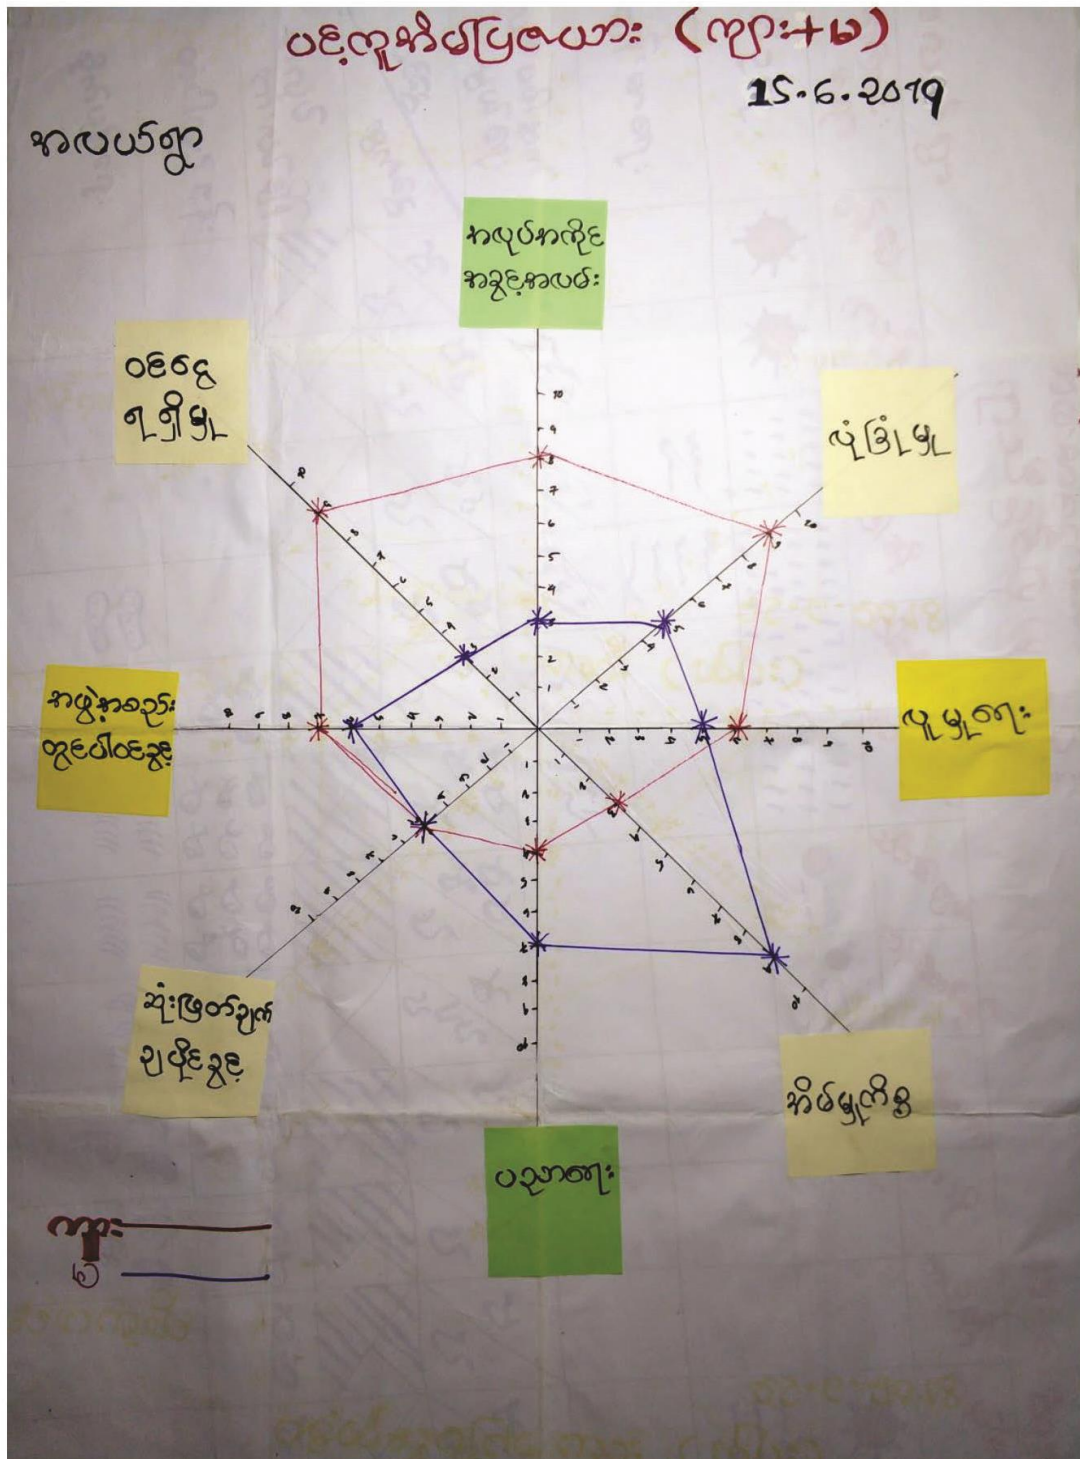 ပင့်ကူအိမ်ပြဇယား (ကျား+မ)
15.6.2019
အလယ်ရွာ
အလုပ်အကိုင်
အခွင့်အလမ်း
ဝင်ငွေ
ရရှိမှု
လုံခြုံမှု
အဖွဲ့အစည်း
တွင်ပါဝင်ခွင့်
လူမှုရေး
ဆုံးဖြတ်ချက်
ချပိုင်ခွင့်
အိမ်မှုကိစ္စ
ပညာရေး
ကျား
မ
10
9
8
7
6
5
4
3
2
1